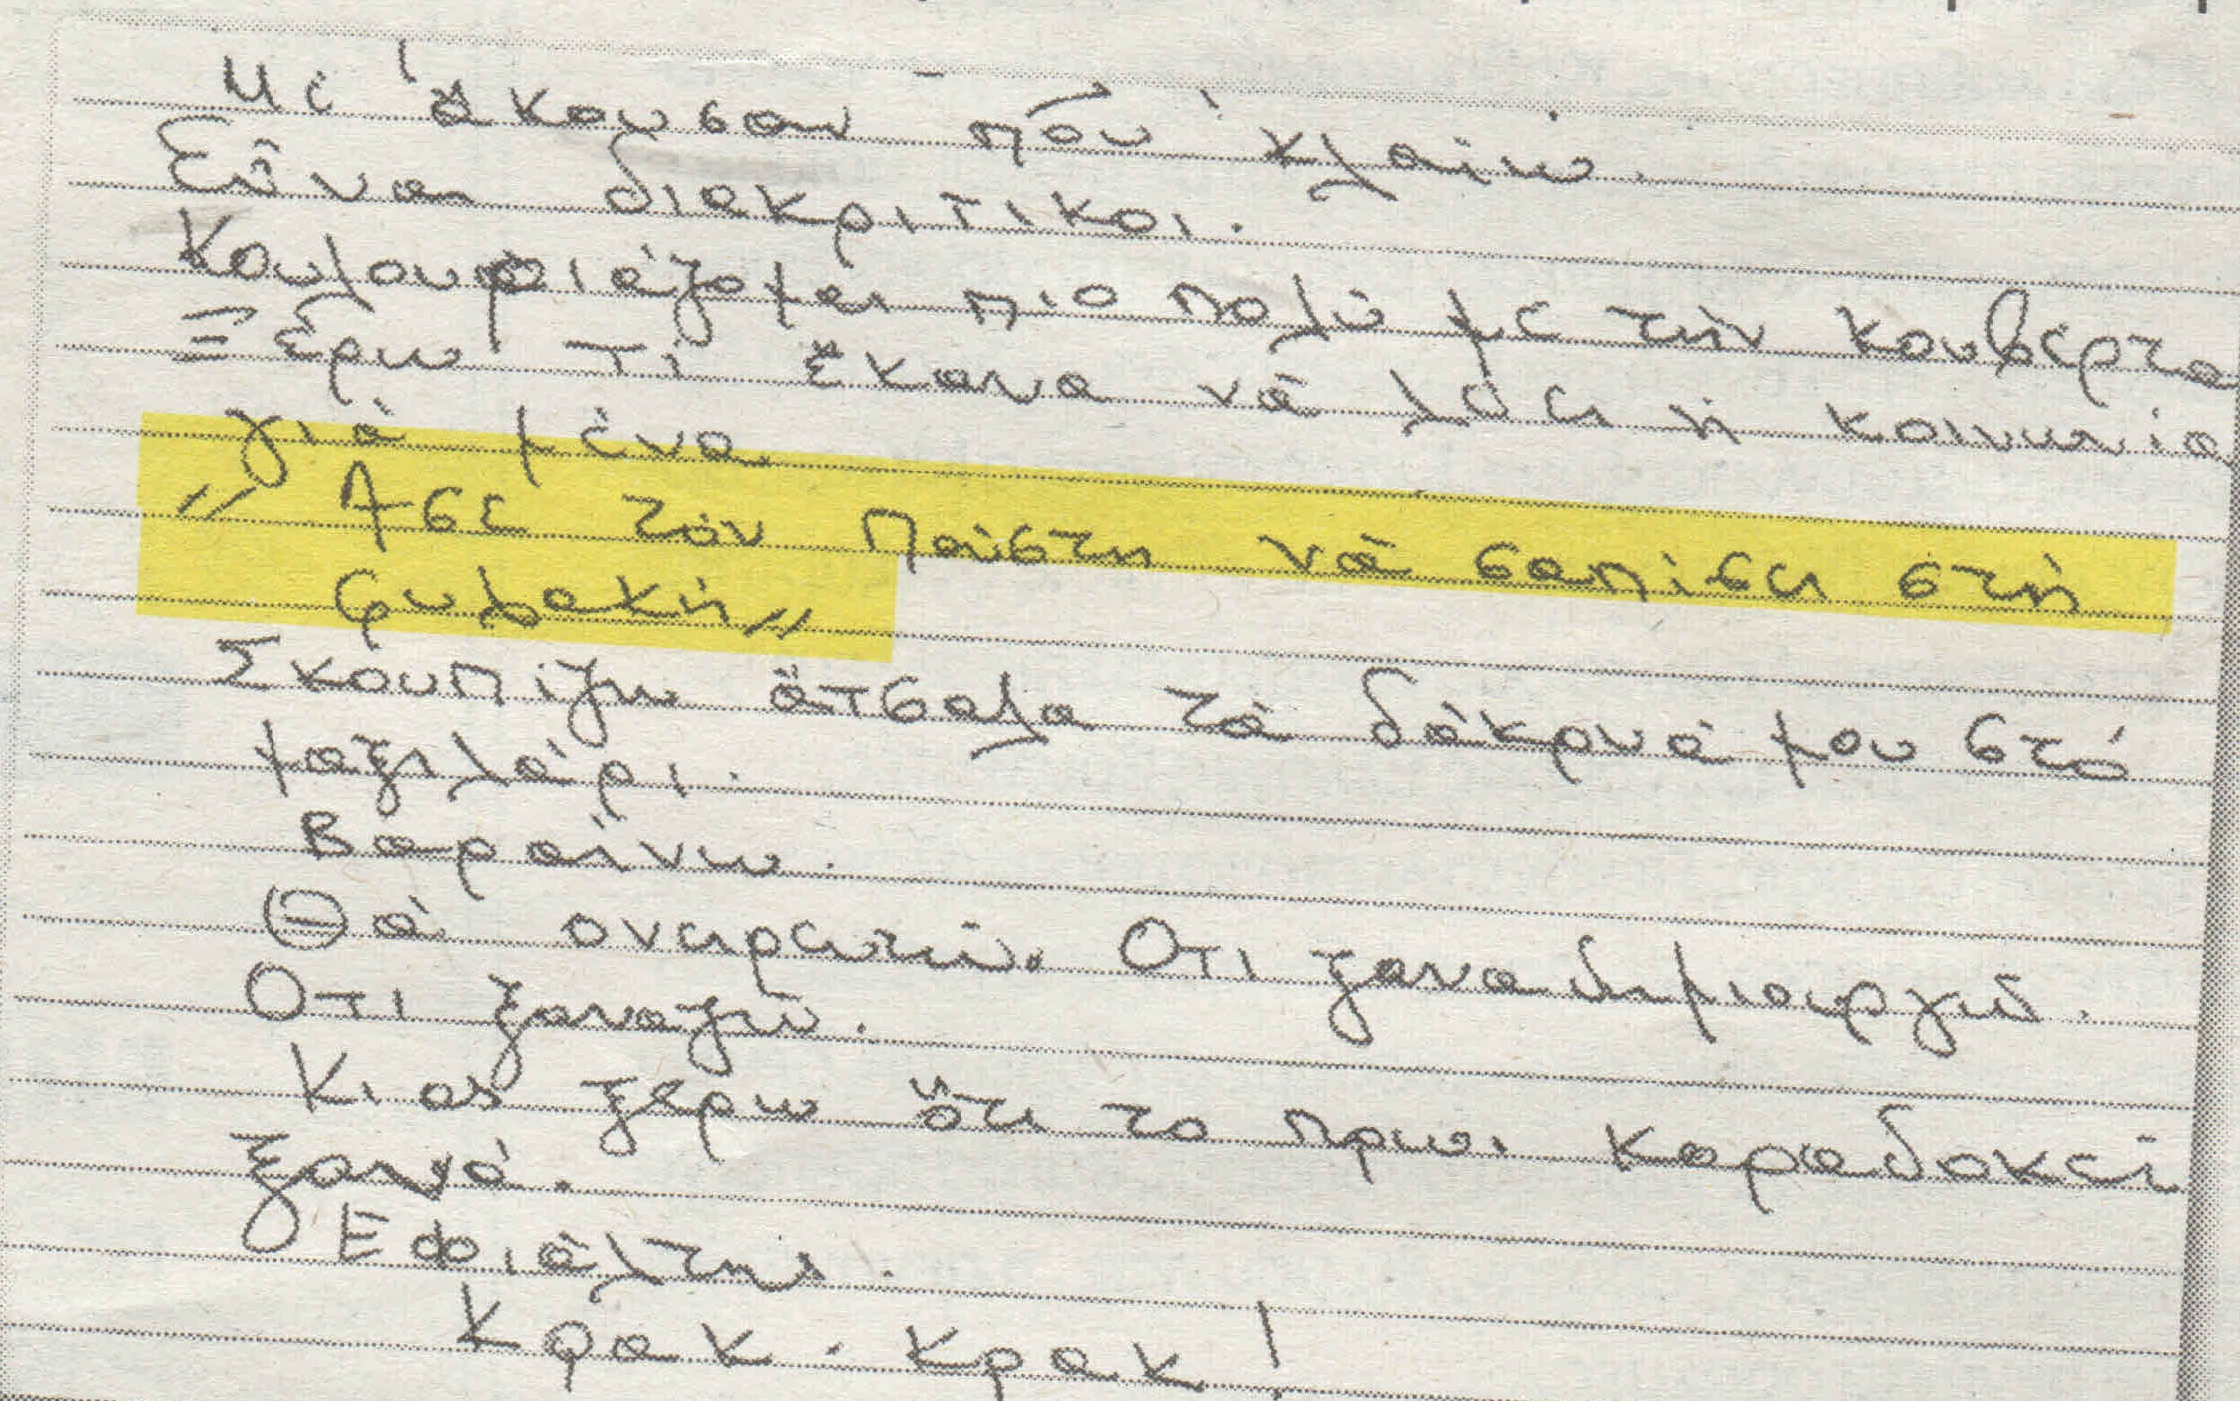 Μέ ἄκουσαν πού κλαίω.
Εἶναι διακριτικοί.
Κουλουριάζομαι πιό πολύ μέ τήν κουβέρτα
Ξέρω τί ἔκανα νά λέει ἡ κοινωνία
γιά μένα.
"Ασε τόν πούστη νά σαπίσει στή
φυλακή"
Σκουπίζω ἄτσαλα τά δάκρυά μου στό
μαξιλάρι.
Βαραίνω.
Θά ονειρευτώ. Οτι ξαναδημιουργώ.
Οτι ξαναζώ.
Κι ας ξερω ὅτι το πρωι καραδοκεί
ξανά.
Εφιάλτης.
Κρακ. κρακ!